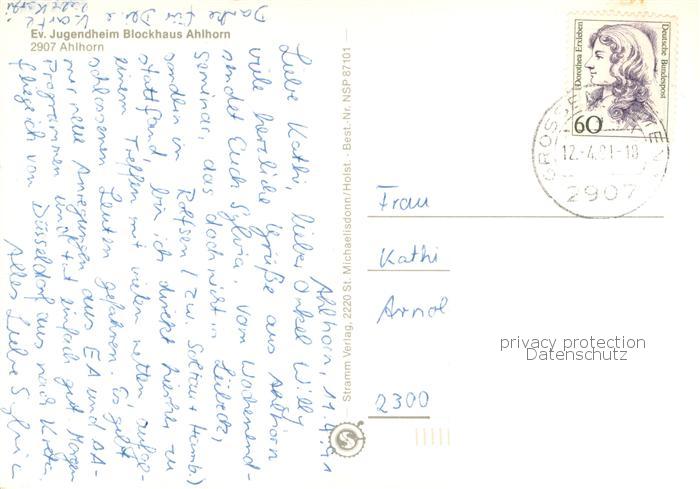 Ev. Jugendheim Blockhaus Ahlhorn
2907 Ahlhorn
Ahlhorn, 11.4.91
Liebe Kathi, lieber Onkel Willy
viele herzliche Grüße aus Ahlhorn
sendet Euch Sylvia. Vom Wochenend-
seminar, das doch nicht in Lübeck,
sondern in Rolfsen (zw. Soltau + Hamb.)
stattfand, bin ich direkt hierher zu
einem Treffen mit vielen netten, aufge-
schlossenen Leuten gefahren. Es gibt
mir neue Anregungen aus EA und AA-
Programmen und tut einfach gut. Morgen
fliege ich von Düsseldorf aus nach Kreta.
Alles Liebe Sylvia
Danke für Deine
Karte
Stramm Verlag, 2220 St. Michaelisdonn/Holst. - Best.-Nr. NSP 87101
Deutsche Bundespost
Dorothea Erxleben
60
12.-4.91-18
2907
Frau
Kathi
Arnol
2300
privacy protection
Datenschutz